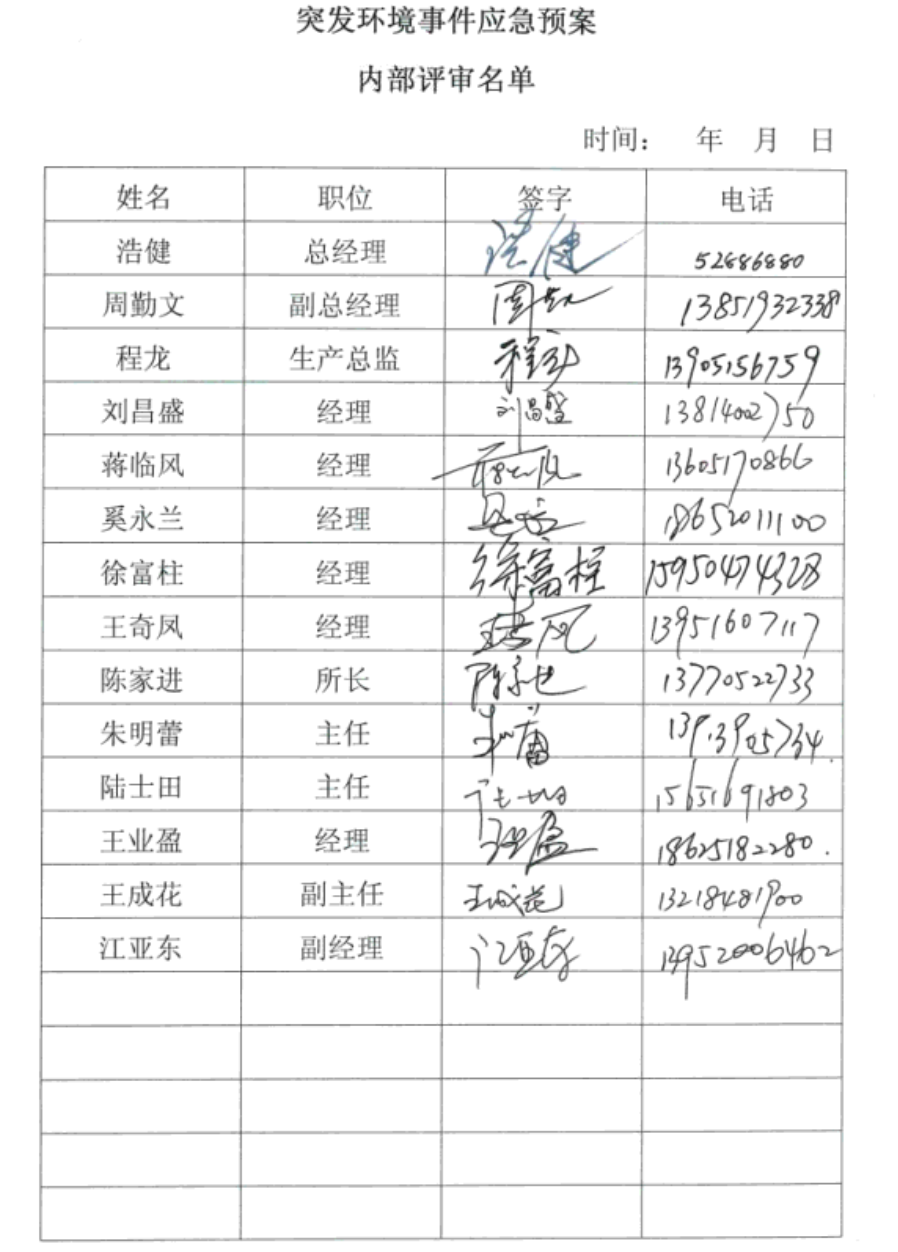 突发环境事件应急预案
内部评审名单
时间： 年 月 日
姓名 职位 签字 电话
浩健 总经理 浩健 52886880
周勤文 副总经理 13851932338
程龙 生产总监 程龙 13905156759
刘昌盛 经理 刘昌盛 13814002750
蒋临风 经理 13605170866
奚永兰 经理 18652011100
徐富柱 经理 徐富柱 15950474328
王奇凤 经理 13951607117
陈家进 所长 陈家进 13770522733
朱明蕾 主任 13913905734
陆士田 主任 15651691803
王业盈 经理 18625182280
王成花 副主任 王成花 13218481900
江亚东 副经理 江亚东 13952006462